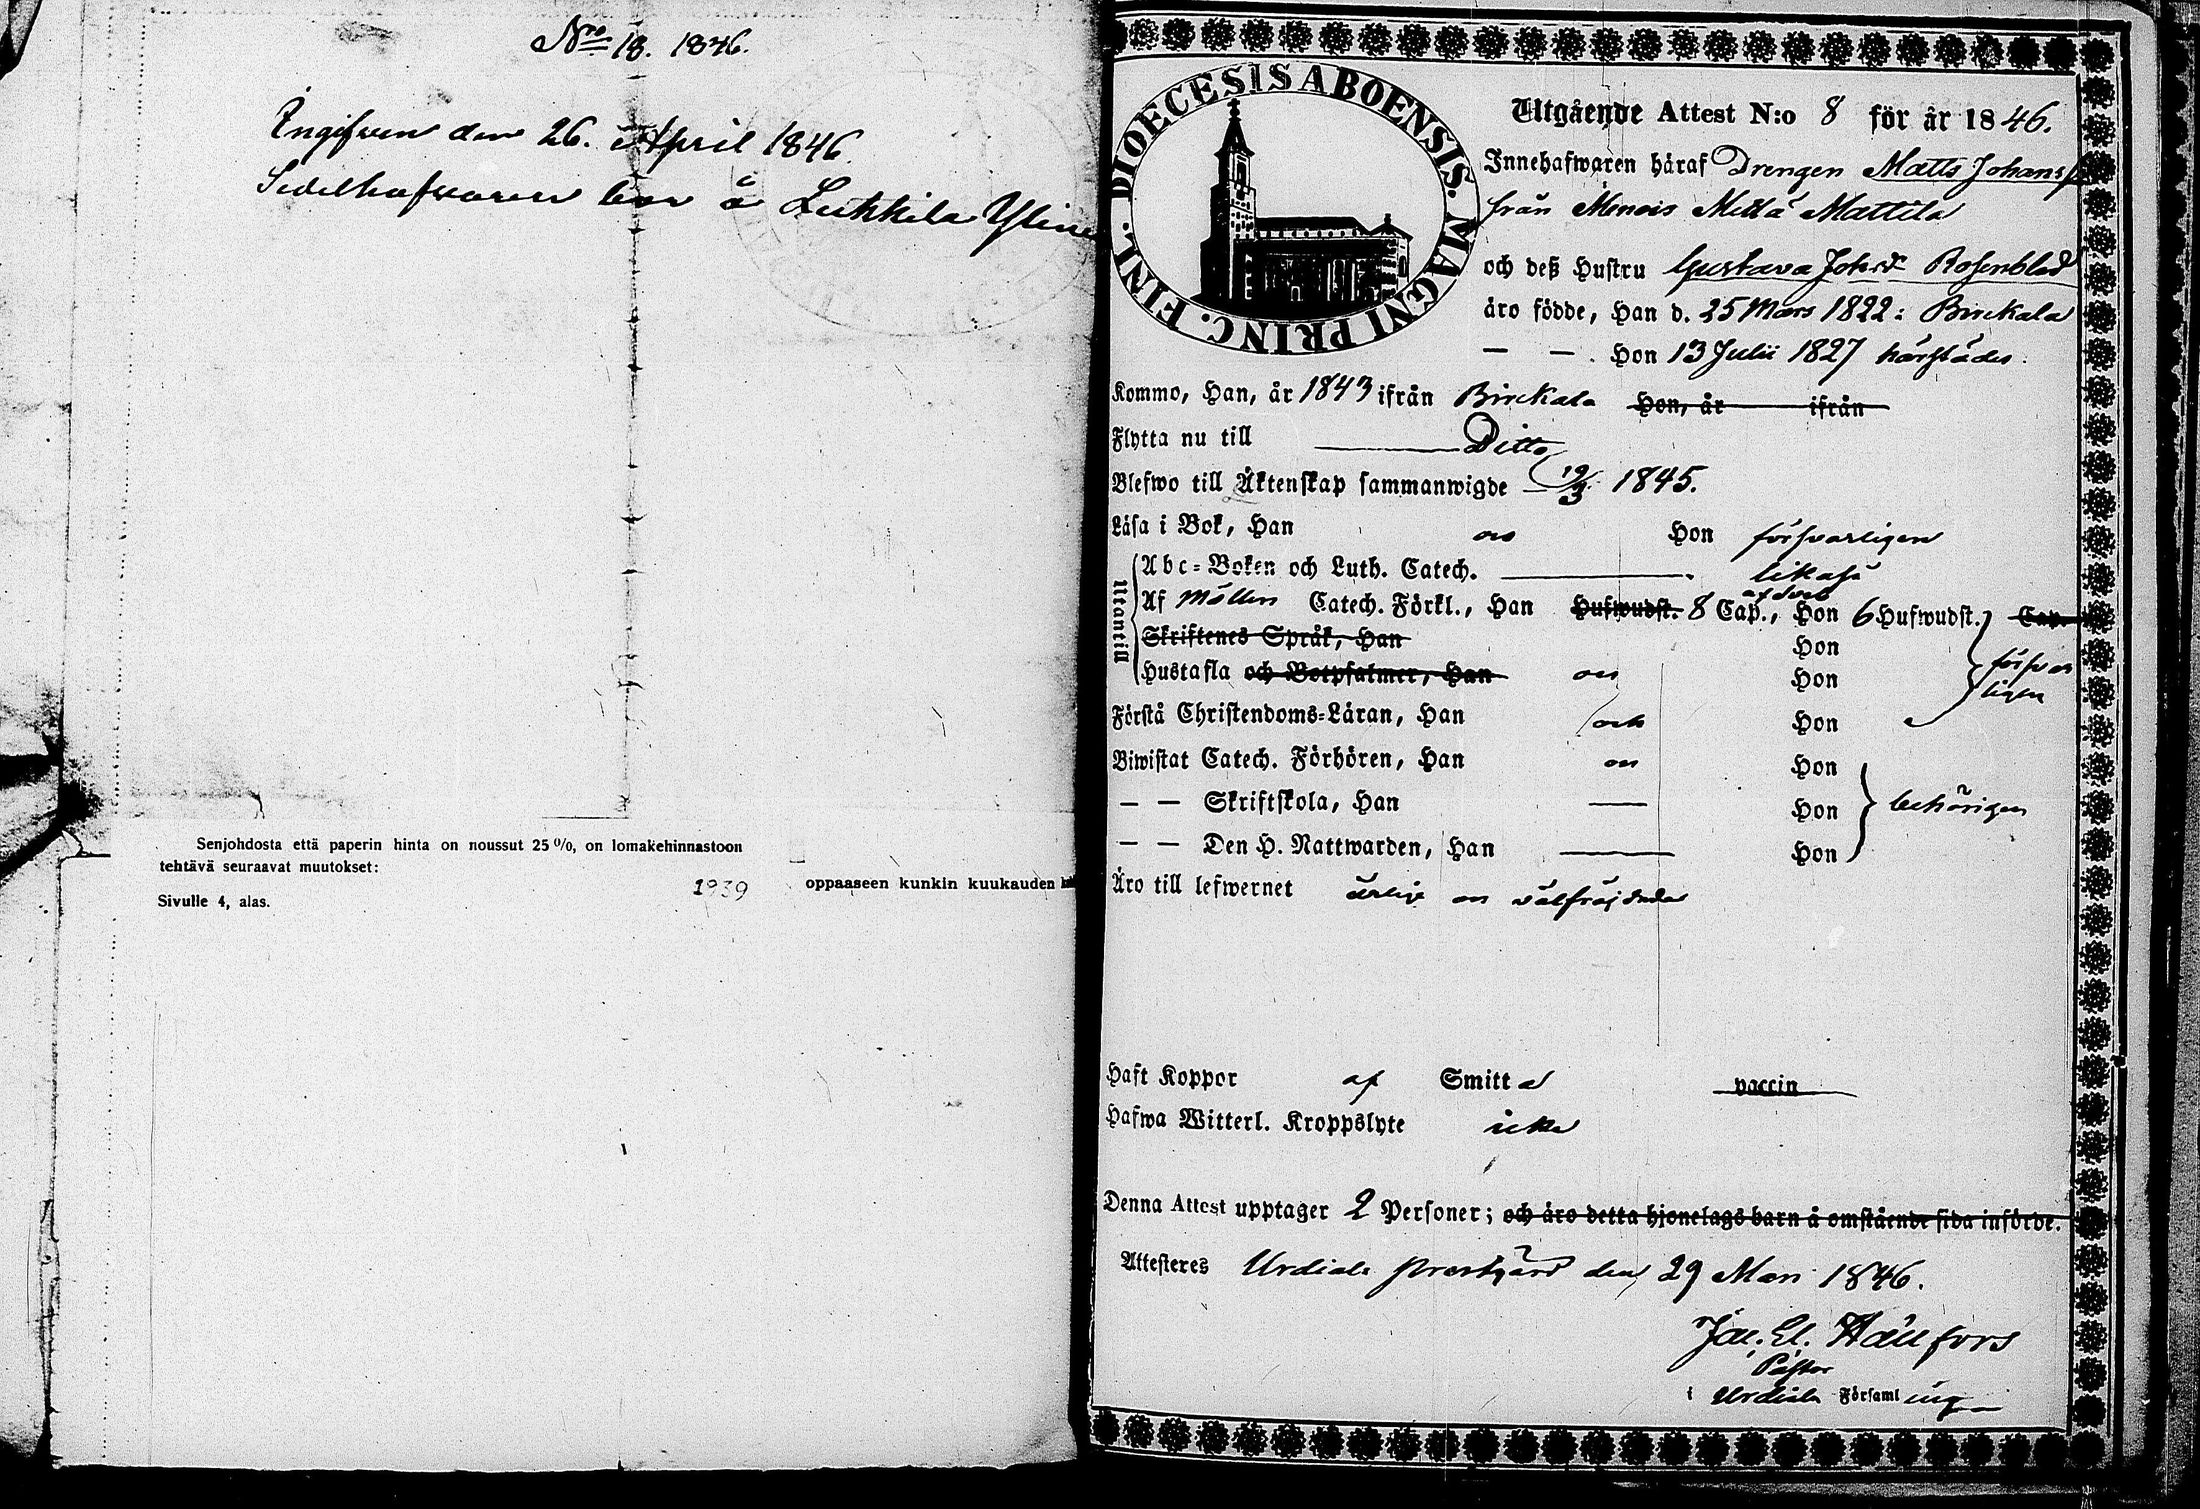 Nro 18. 1846.
Ingifven den 26. April 1846
Sedelhafvaren bor å Lukkila Yline
Senjohdosta että paperin hinta on noussut 25 %, on lomakehinnastoon
tehtävä seuraavat muutokset:
1939 oppaaseen kunkin kuukauden
Sivulle 4, alas.
DIOECESIS ABOENSIS. MAGNI PRINC. FINL.
Utgående Attest N:o 8 för år 1846.
Innehafwaren häraf Drengen Matts Johans
från Menois Mattila
och deß Hustru Gustava Rosenblad
äro födde, Han d. 25 Mars 1822 : Birckala
— — . Hon 13 Julii 1827 härstädes.
Kommo, Han, år 1843 ifrån Birckala Hon, år ifrån
Flytta nu till Ditto
Blefwo till Äktenskap sammanwigde 19/3 1845.
Läsa i Bok, Han oc Hon försvarligen
Utantill
Abc-Boken och Luth. Catech. likaså
Af Möllers Catech. Förkl., Han Hufwudst. 8 Cap., Hon 6 Hufwudst. Cap.
Skriftenes Språk, Han Hon
Hustafla och Botpsalmer, Han Hon försvar
ligen
Förstå Christendoms-Läran, Han och Hon
Biwistat Catech. Förhören, Han Hon
— — Skriftskola, Han Hon behörigen
— — Den H. Nattwarden, Han Hon
Äro till lefwernet ärlige välfräjdade
Haft Koppor af Smitta vaccin
Hafwa Witterl. Kroppslyte icke
Denna Attest upptager 2 Personer; och äro detta hjonelags barn å omstående sida införde.
Attesteres Urdiala prestgård den 29 Mars 1846.
Hällfors
Pastor
i Urdiala Församling